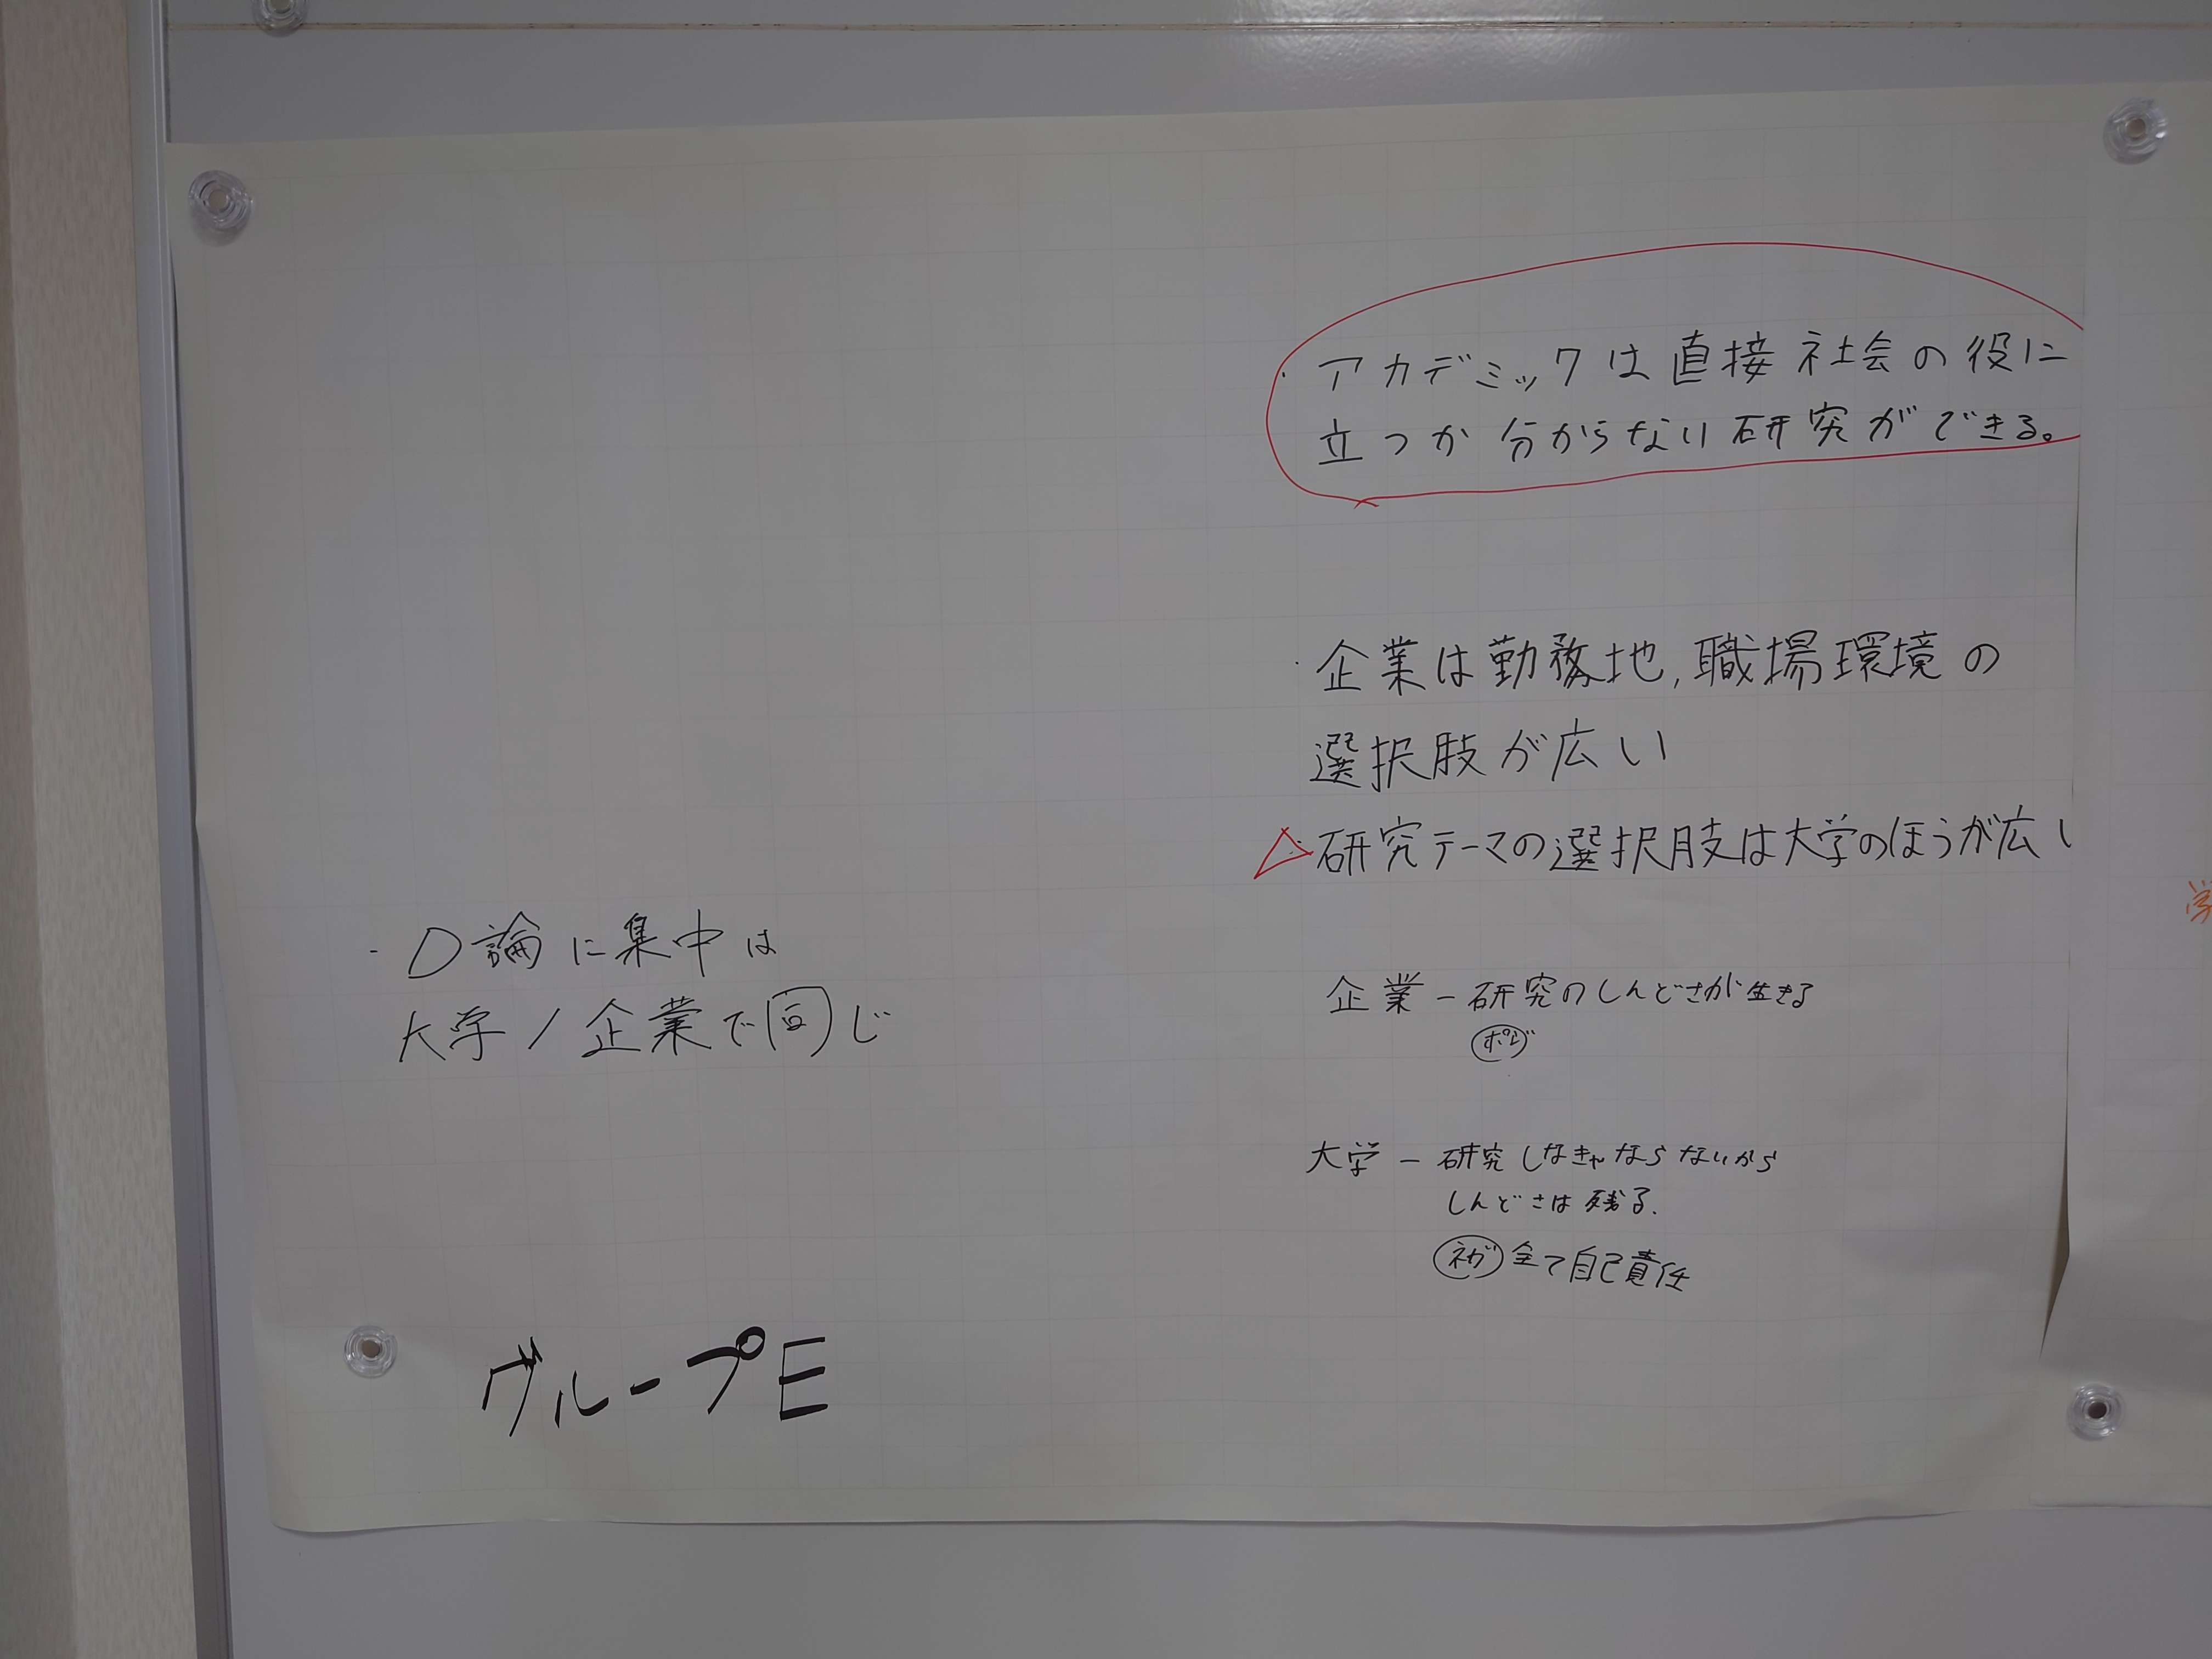 ・アカデミックは直接社会の役に
立つか分からない研究ができる。
・企業は勤務地,職場環境の
選択肢が広い
△・研究テーマの選択肢は大学のほうが広い
・D論に集中は
大学/企業で同じ
企業－研究のしんどさが生きる
ポジ
大学－研究しなきゃならないから
しんどさは残る.
ネガ 全て自己責任
グループE
学